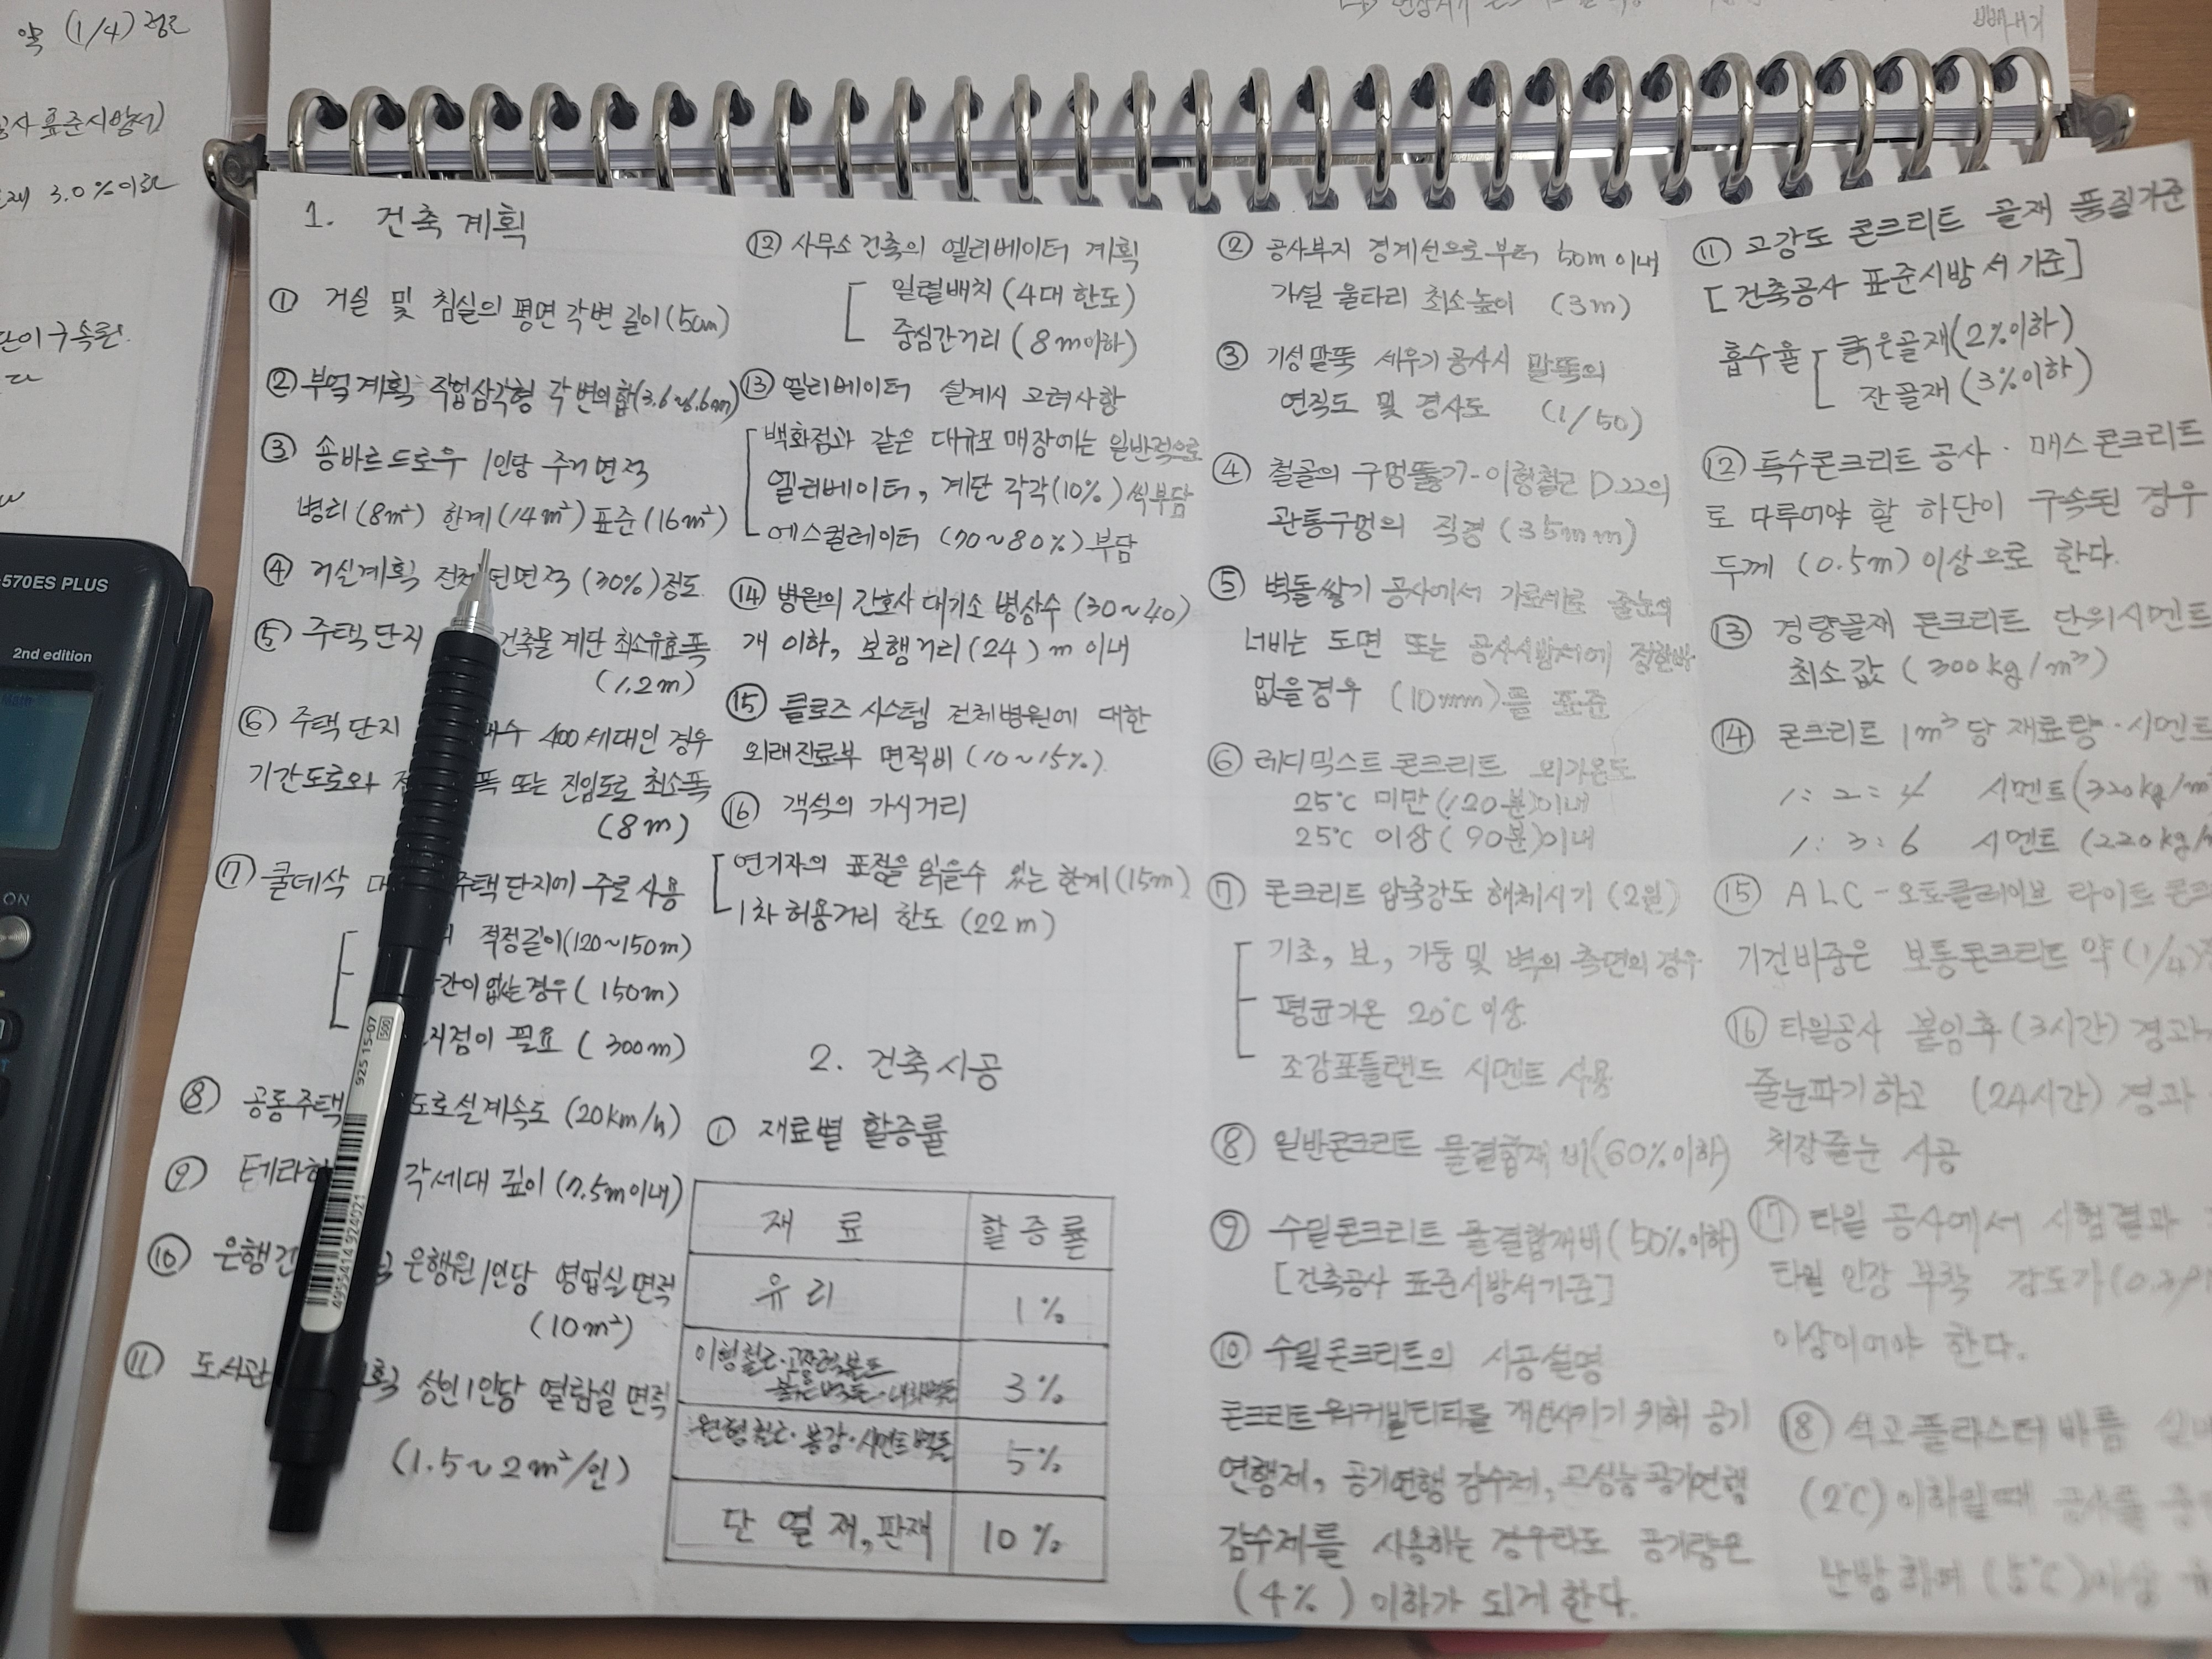 약 (1/4) 정도
공사 표준시방서)
3.0%이하
단이 구속된
다
570ES PLUS
2nd edition
Math
ON
빼내기
1. 건축 계획
① 거실 및 침실의 평면 각변 길이 (5cm)
② 부엌계획 작업삼각형 각변의합(3.6~6.6m)
③ 숑바르드로우 1인당 주거면적
병리(8m²) 한계(14m²) 표준(16m²)
④ 거실계획 전체 면적 (30%)정도
⑤ 주택단지 건축물 계단 최소유효폭
(1.2m)
⑥ 주택단지 400세대인 경우
기간도로와 폭 또는 진입도로 최소폭
(8m)
⑦ 쿨데삭 주택단지에 주로 사용
적정길이(120~150m)
없는경우 (150m)
지점이 필요 (300m)
⑧ 공동주택 도로설계속도 (20km/h)
⑨ 테라하 각세대 깊이 (7.5m이내)
⑩ 은행건 은행원1인당 영업실 면적
(10m²)
⑪ 도서관 획 성인1인당 열람실 면적
(1.5~2m²/인)
925 15-07
500
4955414924021
⑫ 사무소 건축의 엘리베이터 계획
일렬배치 (4대 한도)
중심간거리 (8m이하)
⑬ 엘리베이터 설계시 고려사항
백화점과 같은 대규모 매장에는 일반적으로
엘리베이터, 계단 각각(10%)씩부담
에스컬레이터 (70~80%)부담
⑭ 병원의 간호사 대기소 병상수 (30~40)
개 이하, 보행거리(24) m 이내
⑮ 클로즈 시스템 전체병원에 대한
외래진료부 면적비 (10~15%)
⑯ 객석의 가시거리
연기자의 표정을 읽을수 있는 한계(15m)
1차 허용거리 한도 (22m)
2. 건축시공
① 재료별 할증률
재 료 할증률
유 리 1%
이형철근·고장력볼트
붉은벽돌·내화벽돌 3%
원형철근·봉강·시멘트벽돌 5%
단 열 재, 판재 10%
② 공사부지 경계선으로부터 50m이내
가설 울타리 최소높이 (3m)
③ 기성말뚝 세우기 공사시 말뚝의
연직도 및 경사도 (1/50)
④ 철골의 구멍뚫기-이형철근 D22의
관통구멍의 직경 (35mm)
⑤ 벽돌쌓기 공사에서 가로세로 줄눈의
너비는 도면 또는 공사시방서에 정한바
없을경우 (10mm)를 표준
⑥ 레디믹스트 콘크리트 외기온도
25℃ 미만 (120분)이내
25℃ 이상 (90분)이내
⑦ 콘크리트 압축강도 해체시기 (2일)
기초, 보, 기둥 및 벽의 측면의 경우
평균기온 20℃ 이상
조강포틀랜드 시멘트 사용
⑧ 일반콘크리트 물결합재비(60%이하)
⑨ 수밀콘크리트 물결합재비(50%이하)
[건축공사 표준시방서기준]
⑩ 수밀콘크리트의 시공설명
콘크리트 워커빌티티를 개선시키기 위해 공기
연행제, 공기연행 감수제, 고성능공기연행
감수제를 사용하는 경우라도 공기량은
(4%) 이하가 되게 한다.
⑪ 고강도 콘크리트 골재 품질기준
[건축공사 표준시방서 기준]
흡수율 굵은골재(2%이하)
잔골재 (3%이하)
⑫ 특수콘크리트 공사·매스콘크리트
토 다루어야 할 하단이 구속된 경우
두께 (0.5m) 이상으로 한다.
⑬ 경량골재 콘크리트 단위시멘트
최소값 (300kg/m³)
⑭ 콘크리트 1m³당 재료량·시멘트
1:2:4 시멘트(320kg/m³
1:3:6 시멘트 (220kg/m
⑮ ALC-오토클레이브 라이트 콘크
기건비중은 보통콘크리트 약(1/4)
⑯ 타일공사 붙임후 (3시간) 경과
줄눈파기하고 (24시간) 경과
치장줄눈 시공
⑰ 타일 공사에서 시험결과
타일 인장 부착 강도가
이상이어야 한다.
⑱ 석고플라스터바름
(2℃)이하일때 공사를
난방하여 (5℃)이상